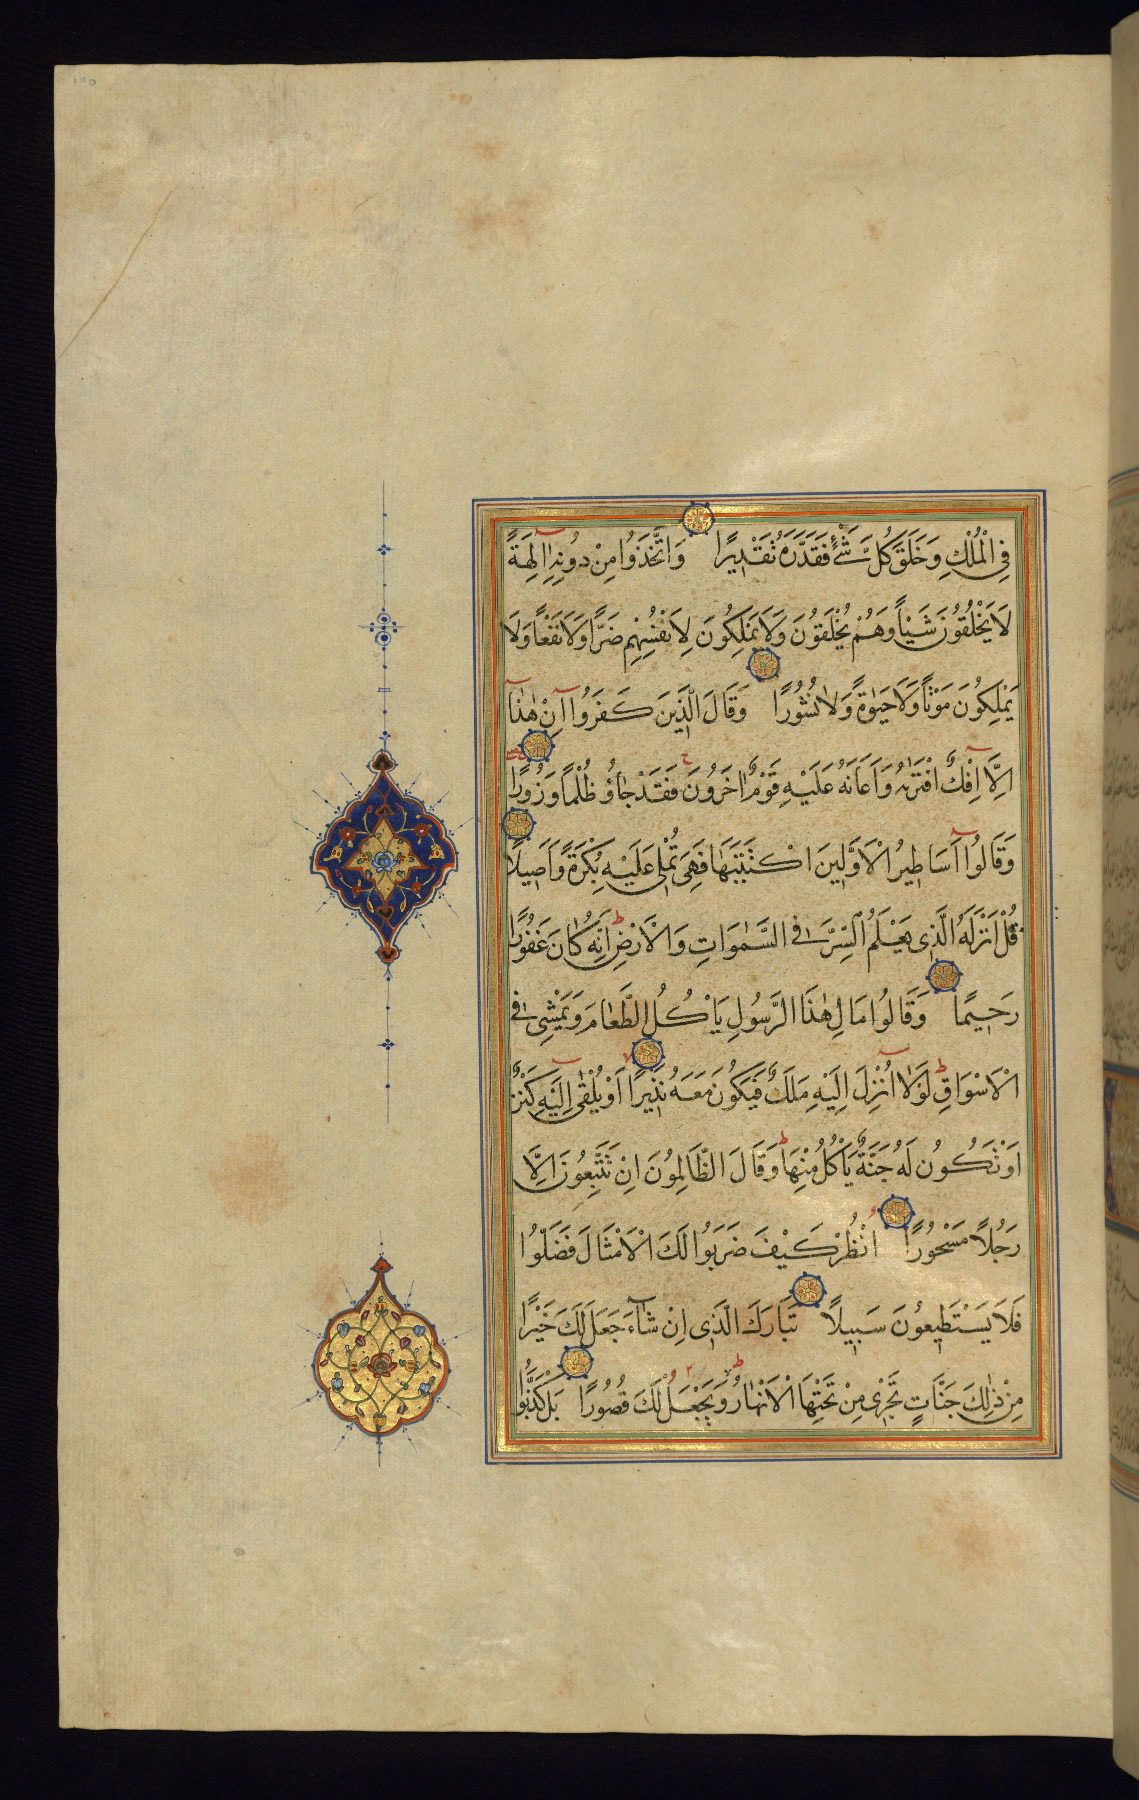 فِي الْمُلْكِ وَخَلَقَ كُلَّ شَيْءٍ فَقَدَّرَهُ تَقْدِيرًا وَاتَّخَذُوا مِنْ دُونِهِ اٰلِهَةً
لَا يَخْلُقُونَ شَيْئًا وَهُمْ يُخْلَقُونَ وَلَا يَمْلِكُونَ لِاَنْفُسِهِمْ ضَرًّا وَلَا نَفْعًا وَلَا
يَمْلِكُونَ مَوْتًا وَلَا حَيٰوةً وَلَا نُشُورًا وَقَالَ الَّذِينَ كَفَرُوا اِنْ هٰذَا
اِلَّا اِفْكٌ افْتَرٰيهُ وَاَعَانَهُ عَلَيْهِ قَوْمٌ اٰخَرُونَ فَقَدْ جَاؤُ ظُلْمًا وَزُورًا
وَقَالُوا اَسَاطِيرُ الْاَوَّلِينَ اكْتَتَبَهَا فَهِيَ تُمْلٰى عَلَيْهِ بُكْرَةً وَاَصِيلًا
قُلْ اَنْزَلَهُ الَّذِي يَعْلَمُ السِّرَّ فِي السَّمٰوَاتِ وَالْاَرْضِ اِنَّهُ كَانَ غَفُورًا
رَحِيمًا وَقَالُوا مَالِ هٰذَا الرَّسُولِ يَاْكُلُ الطَّعَامَ وَيَمْشِي فِي
الْاَسْوَاقِ لَوْلَا اُنْزِلَ اِلَيْهِ مَلَكٌ فَيَكُونَ مَعَهُ نَذِيرًا اَوْ يُلْقٰى اِلَيْهِ كَنْزٌ
اَوْ تَكُونُ لَهُ جَنَّةٌ يَاْكُلُ مِنْهَا وَقَالَ الظَّالِمُونَ اِنْ تَتَّبِعُونَ اِلَّا
رَجُلًا مَسْحُورًا اُنْظُرْ كَيْفَ ضَرَبُوا لَكَ الْاَمْثَالَ فَضَلُّوا
فَلَا يَسْتَطِيعُونَ سَبِيلًا تَبَارَكَ الَّذِي اِنْ شَاءَ جَعَلَ لَكَ خَيْرًا
مِنْ ذٰلِكَ جَنَّاتٍ تَجْرِي مِنْ تَحْتِهَا الْاَنْهَارُ وَيَجْعَلْ لَكَ قُصُورًا بَلْ كَذَّبُوا